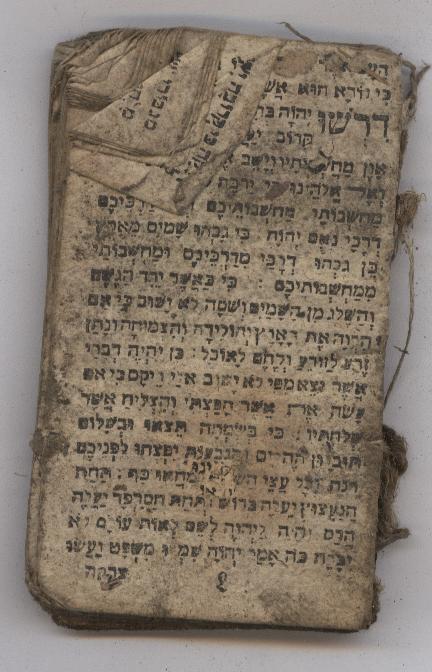 כי נורא הוא
דרשו יהוה
קרוב
וישב
אלהינו כי ירבה
מחשבותי מחשבותיכם דרכיכם
דרכי נאם יהוה כי גבהו שמים מארץ
כן גבהו דרכי מדרכיכם ומחשבותי
ממחשבותיכם: כי כאשר ירד הגשם
והשלג מן השמים ושמה לא ישוב כי אם
הרוה את הארץ והולידה והצמיחה ונתן
זרע לזורע ולחם לאוכל: כן יהיה דברי
אשר יצא מפי לא ישוב אלי ריקם כי אם
עשה את אשר חפצתי והצליח אשר
שלחתיו: כי בשמחה תצאו ובשלום
תובלון ההרים והגבעות יפצחו לפניכם
רנה וכל עצי ימחאו כף: תחת
הנעצוץ יעלה ברוש ותחת הסרפד יעלה
הדס והיה ליהוה לשם לאות עולם לא
יכרת כה אמר יהוה שמרו משפט ועשו
צדקה
כי קרובה